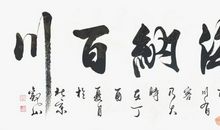 納百川
川有
容
乃大
時
在丁
酉
夏月
於
北京